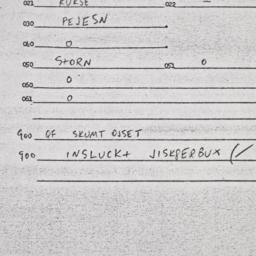 021 KURSE 022 —
030 PEJESN
040 0
050 STORN 052 0
060 0
061 0
900 OF SKUMT OJSET
900 INSLUCKT JISKPERBUX (/